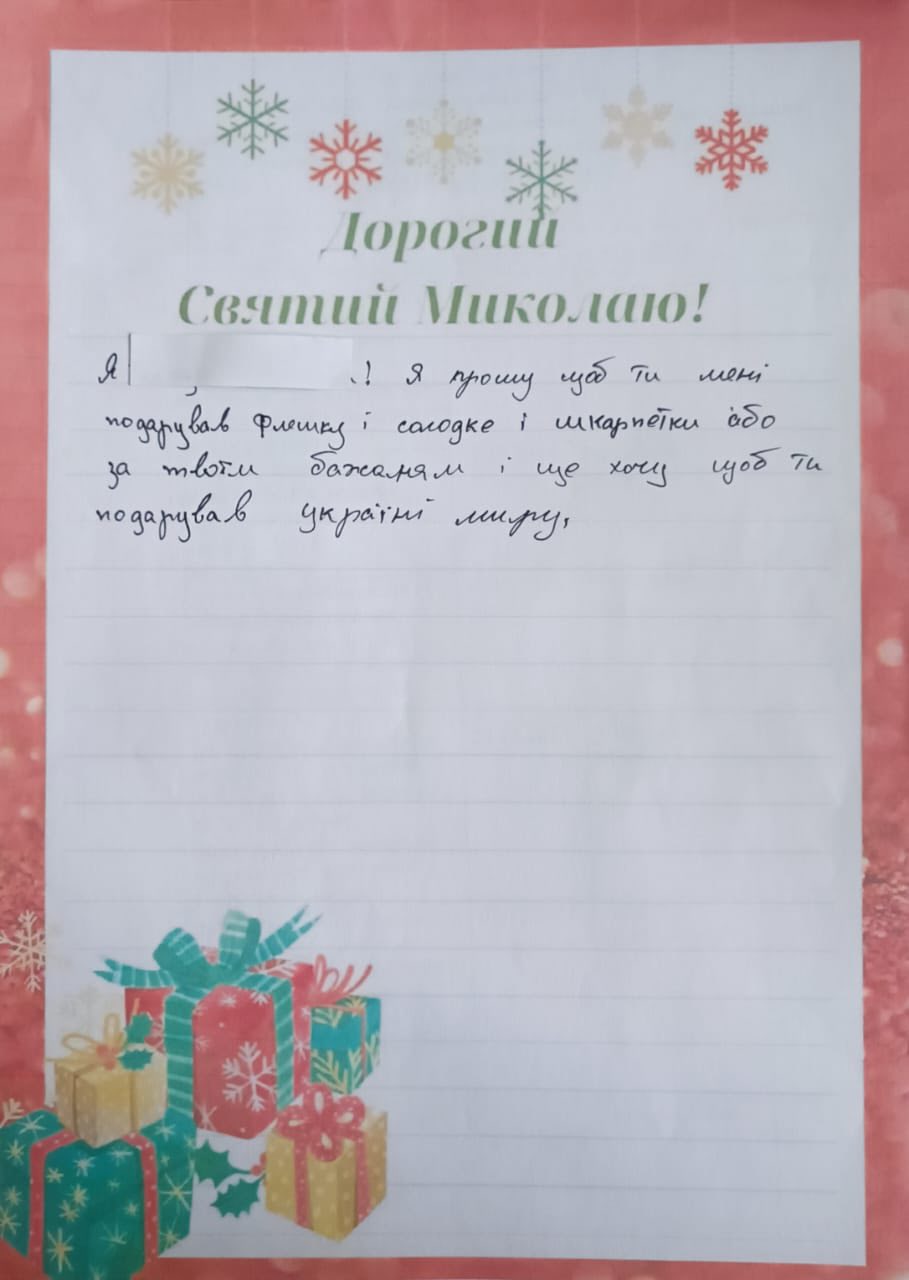 Дорогий
Святий Миколаю!
Я .! Я прошу щоб ти мені
подарував флешку і солодке і шкарпетки або
за твоїм бажаням і ще хочу щоб ти
подарував україні миру,